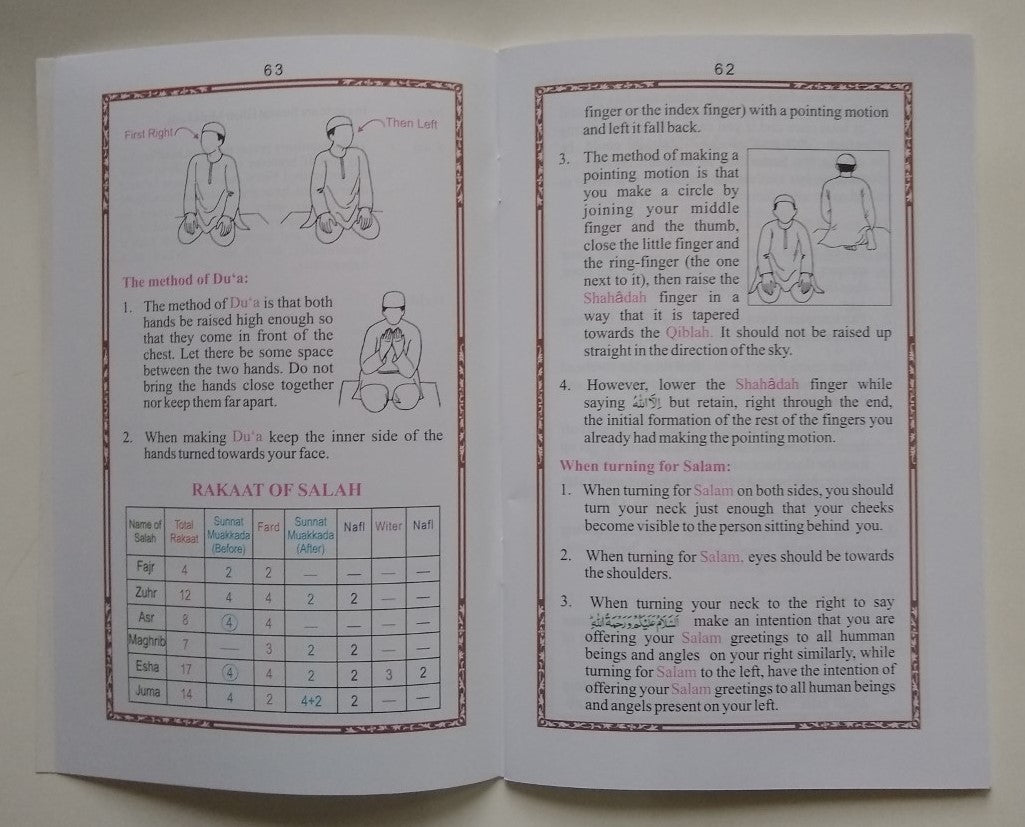 62
finger or the index finger) with a pointing motion
and left it fall back.
3. The method of making a
pointing motion is that
you make a circle by
joining your middle
finger and the thumb,
close the little finger and
the ring-finger (the one
next to it), then raise the
Shahâdah finger in a
way that it is tapered
towards the Qiblah. It should not be raised up
straight in the direction of the sky.
4. However, lower the Shahâdah finger while
saying اِلَّا اللّٰهُ but retain, right through the end,
the initial formation of the rest of the fingers you
already had making the pointing motion.
When turning for Salam:
1. When turning for Salam on both sides, you should
turn your neck just enough that your cheeks
become visible to the person sitting behind you.
2. When turning for Salam, eyes should be towards
the shoulders.
3. When turning your neck to the right to say
اَلسَّلَامُ عَلَيْكُمْ وَرَحْمَةُ اللّٰهِ make an intention that you are
offering your Salam greetings to all humman
beings and angles on your right similarly, while
turning for Salam to the left, have the intention of
offering your Salam greetings to all human beings
and angels present on your left.
63
First Right
Then Left
The method of Du‘a:
1. The method of Du‘a is that both
hands be raised high enough so
that they come in front of the
chest. Let there be some space
between the two hands. Do not
bring the hands close together
nor keep them far apart.
2. When making Du‘a keep the inner side of the
hands turned towards your face.
RAKAAT OF SALAH
Name of Salah Total Rakaat Sunnat Muakkada (Before) Fard Sunnat Muakkada (After) Nafl Witer Nafl
Fajr 4 2 2 — — — —
Zuhr 12 4 4 2 2 — —
Asr 8 4 4 — — — —
Maghrib 7 — 3 2 2 — —
Esha 17 4 4 2 2 3 2
Juma 14 4 2 4+2 2 — —